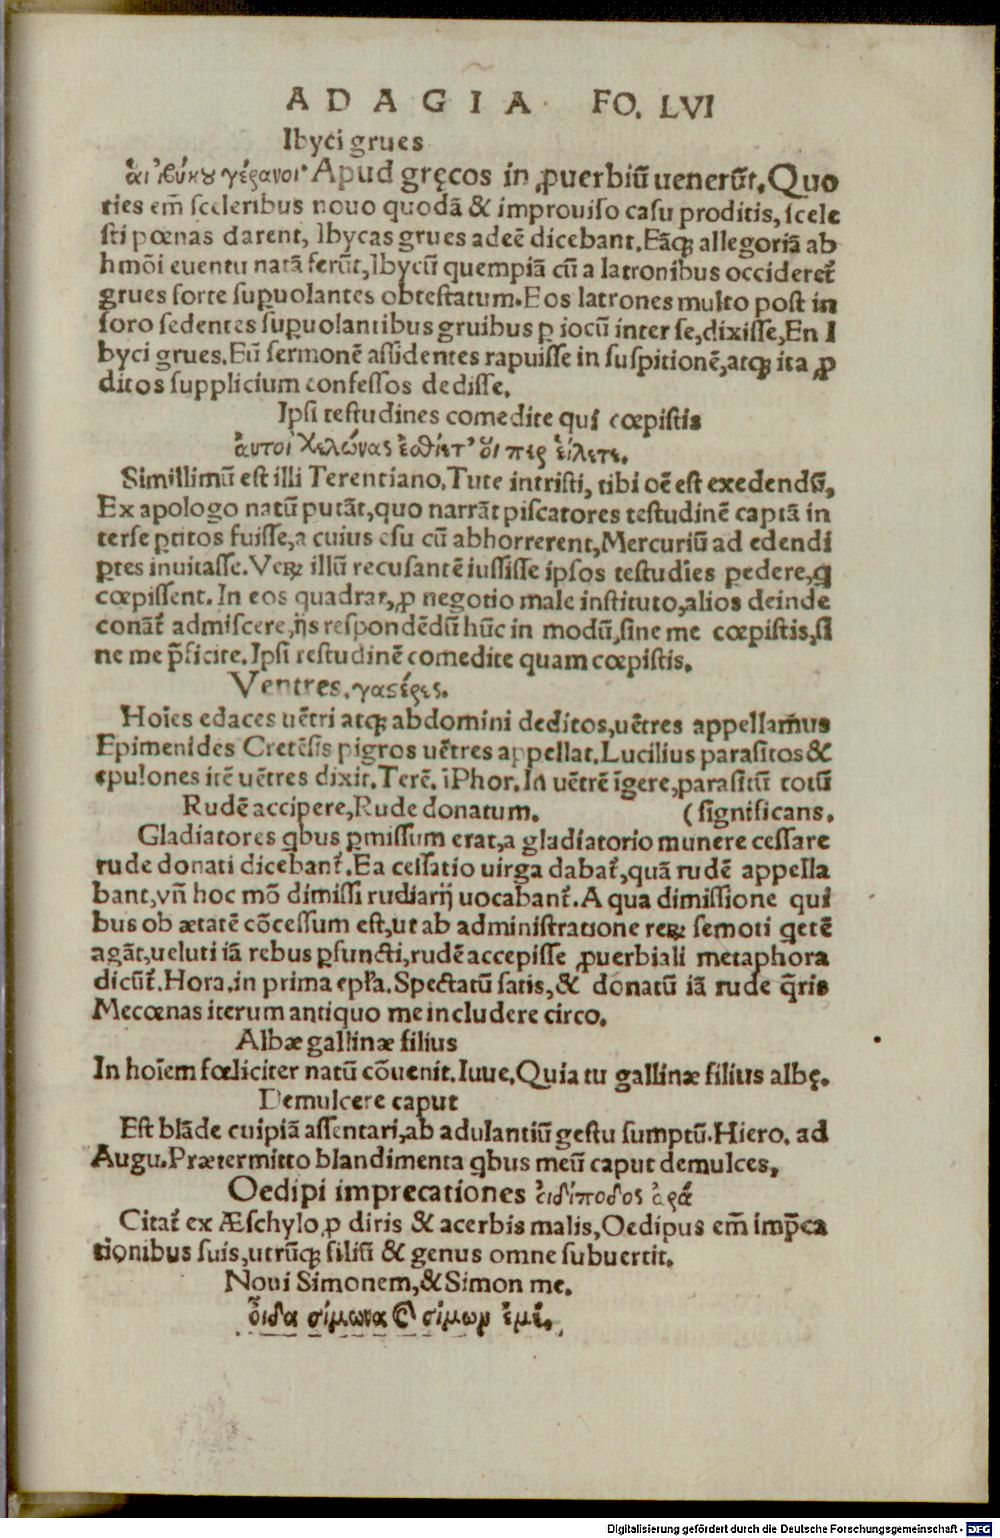 ADAGIA. FO. LVI
Ibyci grues
ἁι ἰβύκȣ γέρανοι Apud gręcos in ꝓuerbiũ uenerũt. Quo
ties em̃ sceleribus nouo quodã & improuiso casu proditis, scele
sti pœnas darent, Ibycas grues adeẽ dicebant. Eãꝙ allegoriã ab
hmõi euentu natã ferũt, Ibycũ quempiã cũ a latronibus occideret̃
grues forte suꝑuolantes obtestatum. Eos latrones multo post in
foro sedentes suꝑuolantibus gruibus ꝑ iocũ inter se, dixisse, En I
byci grues. Eũ sermonẽ assidentes rapuisse in suspitionẽ, atꝙ ita ꝓ
ditos supplicium confessos dedisse.
Ipsi testudines comedite qui cœpistis
ἀυτοὶ χελώνας ἐσθίετ' ὅι περ ἑίλετε.
Simillimũ est illi Terentiano. Tute intristi, tibi oẽ est exedendũ,
Ex apologo natũ putãt, quo narrãt piscatores testudinẽ captã in
terse ꝑtitos fuisse, a cuius esu cũ abhorrerent, Mercuriũ ad edendi
ꝑtes inuitasse. Veꝝ illũ recusantẽ iussisse ipsos testudĩes ꝑedere, q̃
cœpissent. In eos quadrat, ꝓ negotio male instituto, alios deinde
conãt̃ admiscere, ijs respondẽdũ hũc in modũ, sine me cœpistis, si
ne me ꝑficite. Ipsi testudinẽ comedite quam cœpistis.
Ventres. γαϛέρες.
Hoĩes edaces uẽtri atꝙ abdomini deditos, uẽtres appellam̃us
Epimenides Cretẽsis pigros uẽtres appellat. Lucilius parasitos &
epulones itẽ uẽtres dixit. Terẽ. ĩ Phor. In uẽtrẽ ĩgere, parasitũ totũ
Rudẽ accipere, Rude donatum. (significans.
Gladiatores qbus ꝑmissum erat, a gladiatorio munere cessare
rude donati dicebant̃. Ea cessatio uirga dabat̃, quã rudẽ appella
bant, uñ hoc mõ dimissi rudiarij uocabant̃. A qua dimissione qui
bus ob ætatẽ cõcessum est, ut ab administratione reꝝ semoti qetẽ
agãt, ueluti iã rebus ꝑfuncti, rudẽ accepisse ꝓuerbiali metaphora
dicũt. Hora. in prima epl̃a. Spectatũ satis, & donatũ iã rude q̃ris
Mecœnas iterum antiquo me includere circo.
Albæ gallinæ filius
In hoĩem fœliciter natũ cõuenit. Iuue. Quia tu gallinæ filius albę.
Demulcere caput
Est blãde cuipiã assentari, ab adulantiũ gestu sumptũ. Hiero. ad
Augu. Prætermitto blandimenta qbus meũ caput demulces,
Oedipi imprecationes ἐιδίποδος ἀρά
Citat̃ ex Æschylo, ꝓ diris & acerbis malis, Oedipus em̃ imp̃ca
tionibus suis, utrũꝙ filiũ & genus omne subuertit.
Noui Simonem, & Simon me.
ὄιδα σίμωνα ϗ σίμωρ ἐμέ.
Digitalisierung gefördert durch die Deutsche Forschungsgemeinschaft - DFG